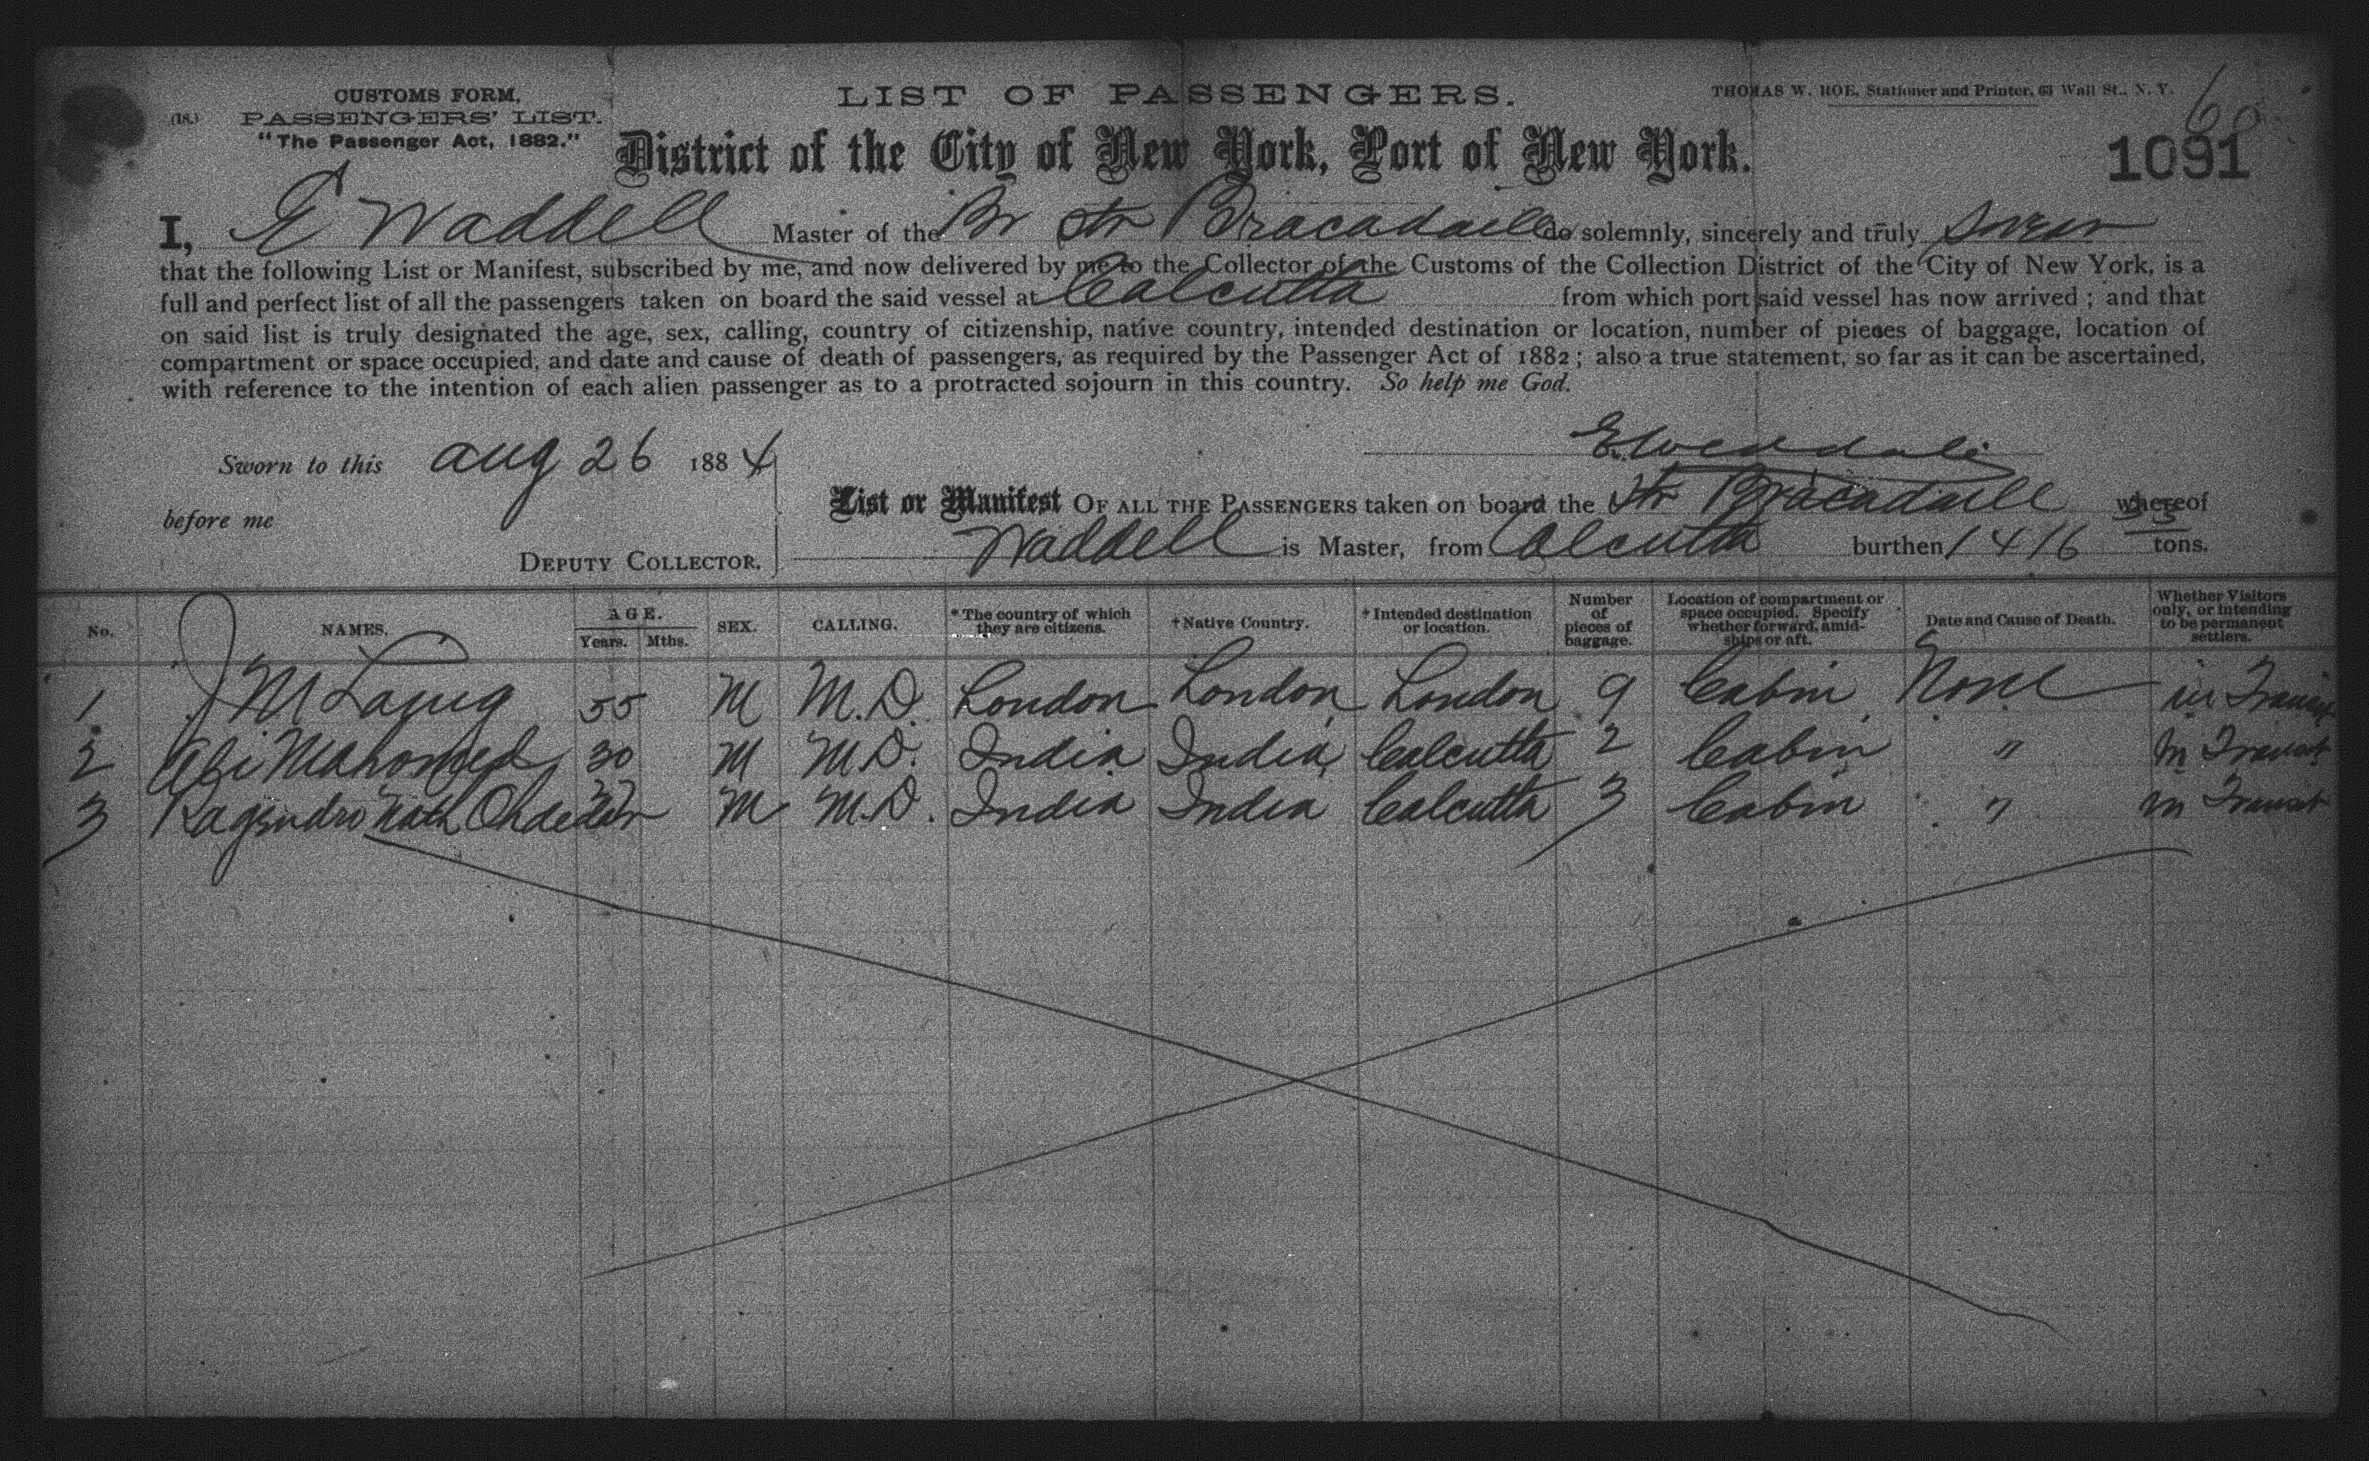 CUSTOMS FORM,
(18.) PASSENGERS' LIST.
"The Passenger Act, 1882."
LIST OF PASSENGERS.
THOMAS W. ROE, Stationer and Printer, 63 Wall St., N. Y.
60
District of the City of New York, Port of New York.
1091
I, E Waddell Master of the Br Str Bracadaill do solemnly, sincerely and truly swear
that the following List or Manifest, subscribed by me, and now delivered by me to the Collector of the Customs of the Collection District of the City of New York, is a
full and perfect list of all the passengers taken on board the said vessel at Calcutta from which port said vessel has now arrived ; and that
on said list is truly designated the age, sex, calling, country of citizenship, native country, intended destination or location, number of pieces of baggage, location of
compartment or space occupied, and date and cause of death of passengers, as required by the Passenger Act of 1882 ; also a true statement, so far as it can be ascertained,
with reference to the intention of each alien passenger as to a protracted sojourn in this country. So help me God.
Sworn to this aug 26 1884
before me
DEPUTY COLLECTOR.
List or Manifest OF ALL THE PASSENGERS taken on board the Str Bracadaill whereof
Waddell is Master, from Calcutta burthen 1416 tons.
No. NAMES. AGE. Years. Mths. SEX. CALLING. *The country of which they are citizens. †Native Country. †Intended destination or location. Number of pieces of baggage. Location of compartment or space occupied. Specify whether forward, amidships or aft. Date and Cause of Death. Whether Visitors only, or intending to be permanent settlers.
1 J M 55 M M.D. London London London 9 Cabin None in Transit
2 Mahomed 30 M M.D. India India Calcutta 2 Cabin " In Transit
3 Nath M M.D. India India Calcutta 3 Cabin " In Transit